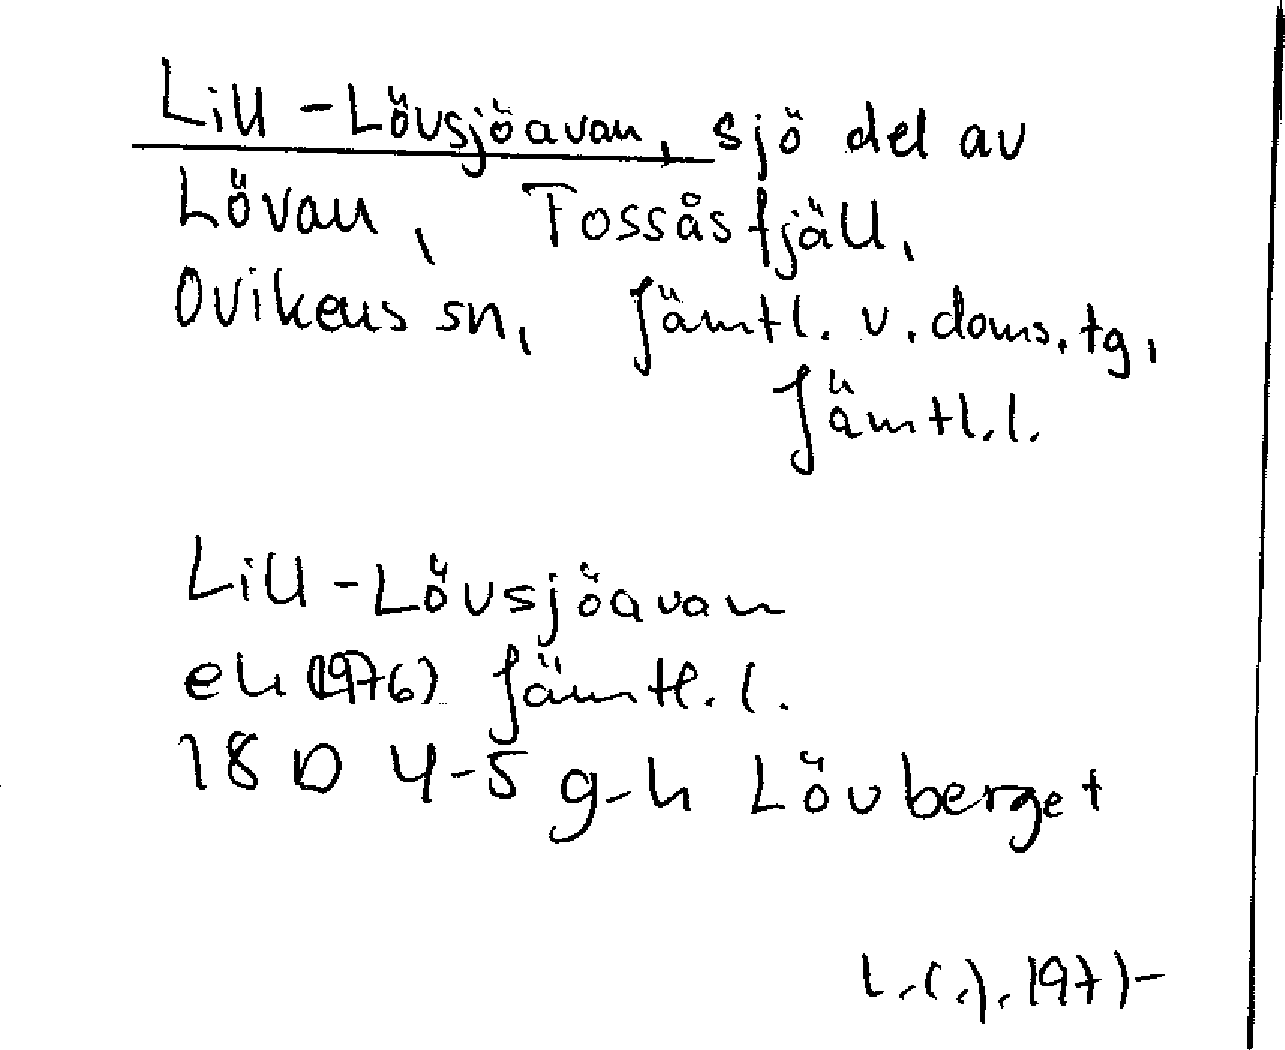 Lill-Lövsjöavan, sjö del av
Lövan, Fossåsfjäll,
Ovikens sn, Jämtl. v. doms. tg,
Jämtl. l.
Lill-Lövsjöavan
ek (1976) Jämtl. l.
18 D 4-5 g-h Lövberget